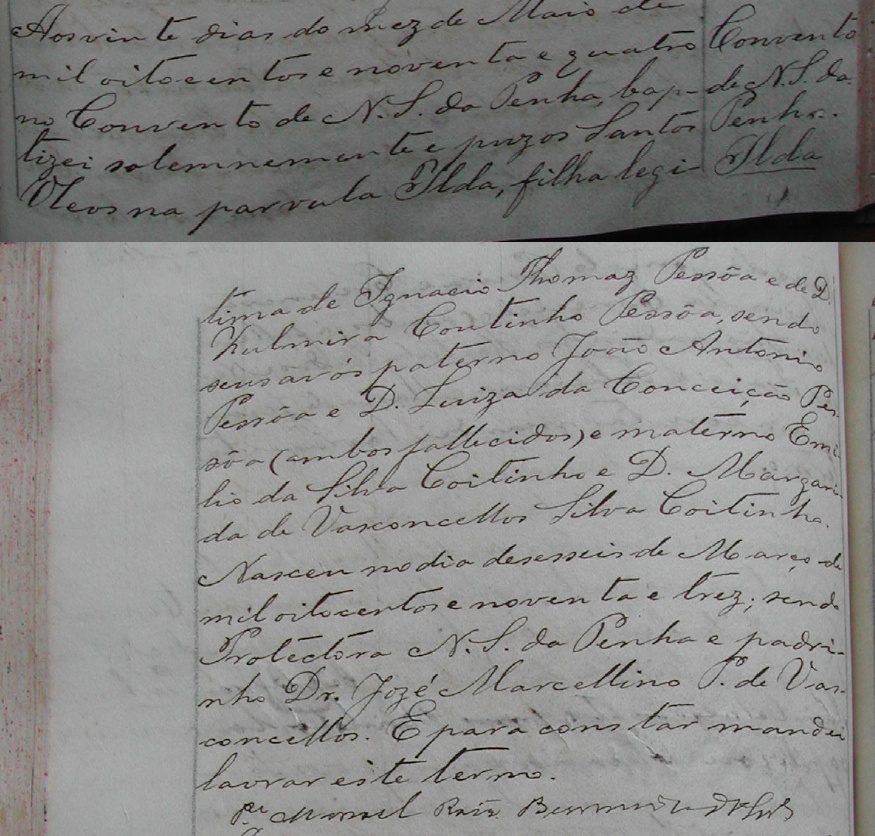 Aos vinte dias do mez de Maio de
mil oitocentos e noventa e quatro
no Convento de N. S. da Penha, bap-
tizei solemnemente e puz os Santos
Oleos na parvula Ilda, filha legi-
Convento
de N. S. da
Penha.
Ilda
tima de Ignacio Thomaz Pessôa e de D.
Zulmira Coutinho Pessôa, sendo
seus avós paterno João Antonio
Pessôa e D. Luiza da Conceição Pes-
sôa (ambos fallecidos) e materno Emi
lio da Silva Coitinho e D. Margari-
da de Vasconcellos Silva Coitinho.
Nasceu no dia desesseis de Março de
mil oitocentos e noventa e trez; sendo
Protectora N. S. da Penha e padri-
nho Dr. Jozé Marcellino P. de Vas-
concellos. E para constar mandei
lavrar este termo.
Pe. Manoel